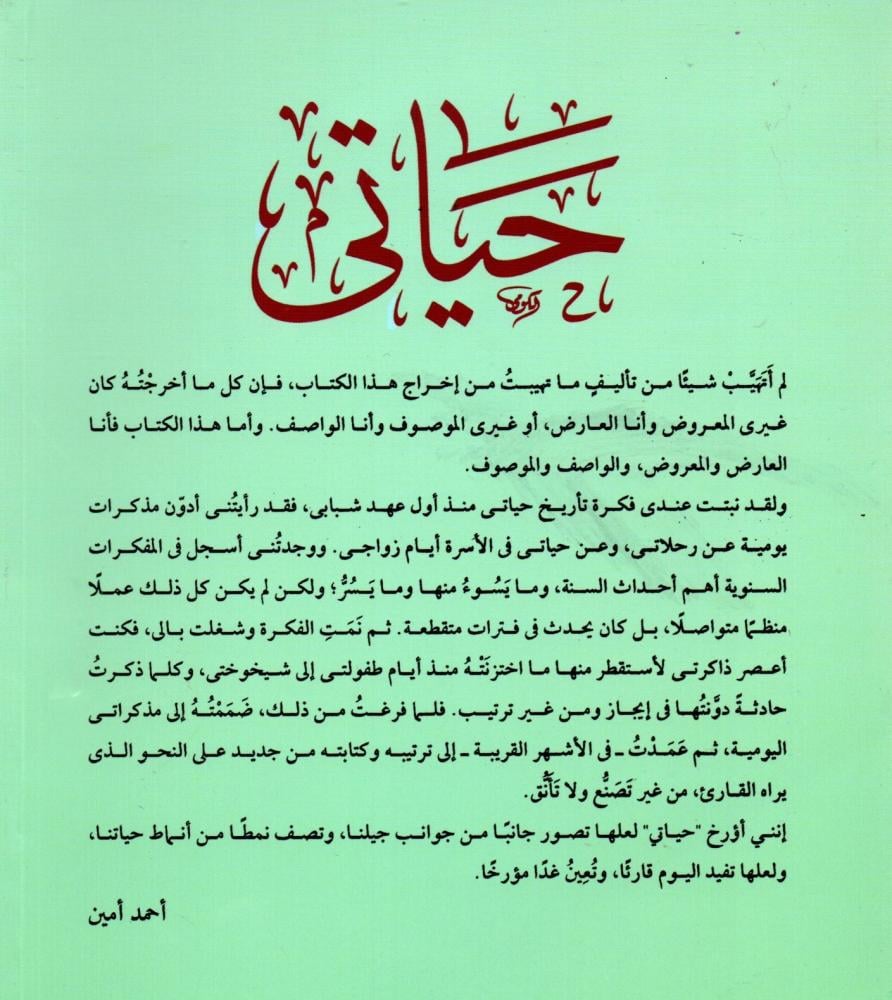 حياتى
لم أَتَهَيَّبْ شيئًا من تأليفٍ ما تهيبتُ من إخراج هذا الكتاب، فإن كل ما أخرجْتُهُ كان
غيرى المعروض وأنا العارض، أو غيرى الموصوف وأنا الواصف. وأما هذا الكتاب فأنا
العارض والمعروض، والواصف والموصوف.
ولقد نبتت عندى فكرة تأريخ حياتى منذ أول عهد شبابى، فقد رأيتُنى أدوّن مذكرات
يومية عن رحلاتى، وعن حياتى فى الأسرة أيام زواجى. ووجدتُنى أسجل فى المفكرات
السنوية أهم أحداث السنة، وما يَسُوءُ منها وما يَسُرُّ؛ ولكن لم يكن كل ذلك عملًا
منظمًا متواصلًا، بل كان يحدث فى فترات متقطعة. ثم نَمَتِ الفكرة وشغلت بالى، فكنت
أعصر ذاكرتى لأستقطر منها ما اختزنَتْهُ منذ أيام طفولتى إلى شيخوختى، وكلما ذكرتُ
حادثةً دوَّنتُها فى إيجاز ومن غير ترتيب. فلما فرغتُ من ذلك، ضَمَمْتُهُ إلى مذكراتى
اليومية، ثم عَمَدْتُ ـ فى الأشهر القريبة ـ إلى ترتيبه وكتابته من جديد على النحو الذى
يراه القارئ، من غير تَصَنُّع ولا تَأَنُّق.
إننى أؤرخ "حياتي" لعلها تصور جانبًا من جوانب جيلنا، وتصف نمطًا من أنماط حياتنا،
ولعلها تفيد اليوم قارئًا، وتُعِينُ غدًا مؤرخًا.
أحمد أمين